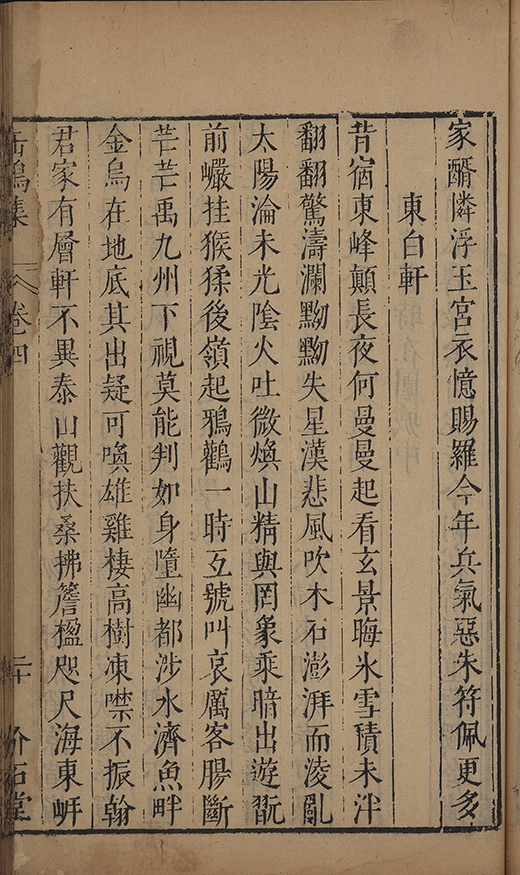 家醑憐浮玉宮衣憶賜羅今年兵氣惡朱符佩更多
東白軒
昔宿東峰顛長夜何曼曼起看玄景晦氷雪積未泮
翻翻驚濤瀾黝黝失星漢悲風吹木石澎湃而淩亂
太陽淪未光陰火吐微煥山精與罔象乘暗出遊翫
前巘挂猴猱後嶺起鴉鸛一時互號叫哀厲客腸斷
芒芒禹九州下視莫能判如身墮幽都涉水濟魚畔
金烏在地底其出疑可喚雄雞棲高樹凍噤不振翰
君家有層軒不異泰山觀扶桑拂簷楹咫尺海東岍
鳴集
卷四
二十
介石堂